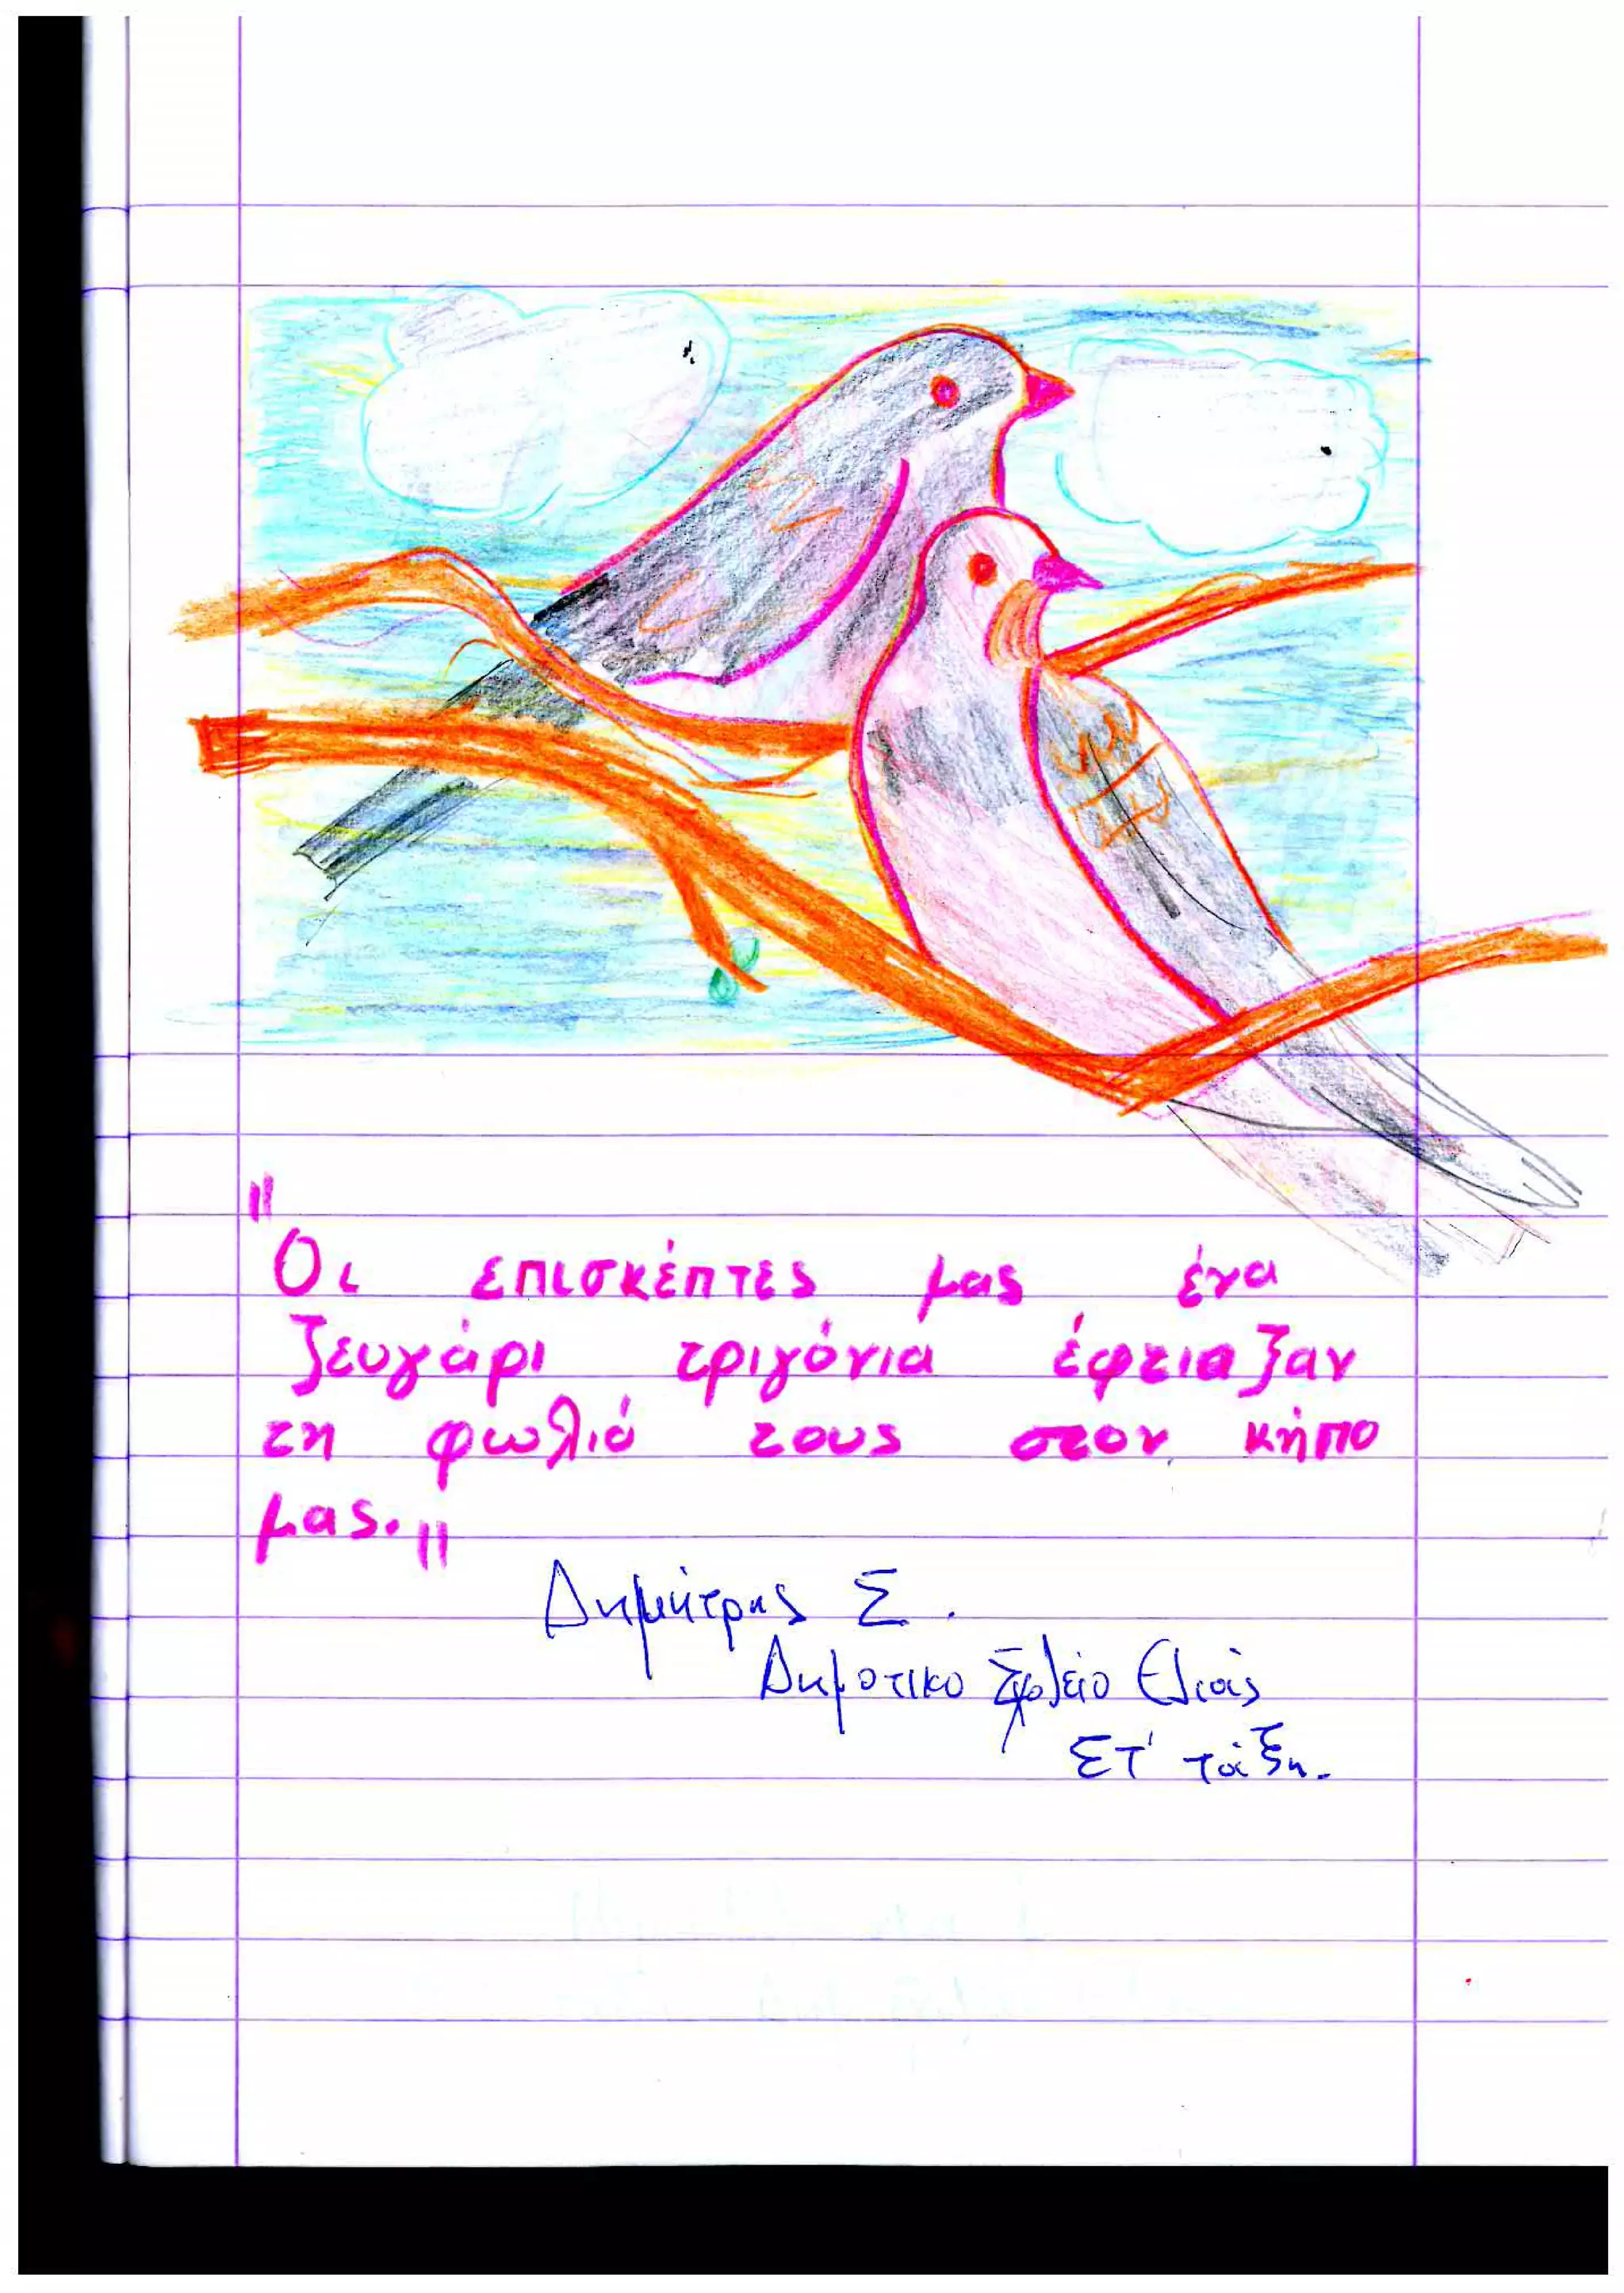 "Οι επισκέπτες μας ένα
ζευγάρι τριγόνια έφτιαζαν
τη φωλιά τους στον κήπο
μας."
Δημήτρης Σ.
Δημοτικο Σχολείο Ελιάς
ΣΤ' τάξη.